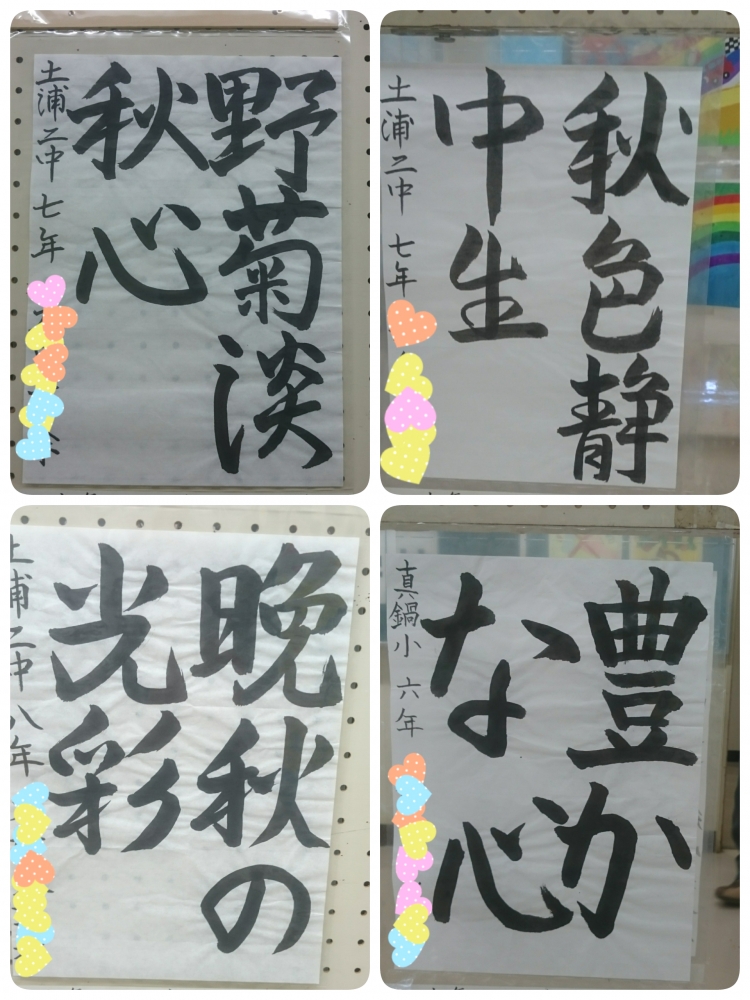 野菊淡
秋心
土浦二中 七年
秋色静
中生
土浦二中 七年
晩秋の
光彩
土浦二中 八年
豊か
な心
真鍋小 六年